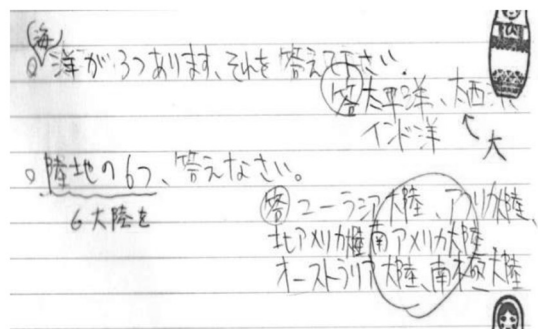 (海)
。洋が3つあります、それを答えて下さい。
答 太平洋、太西洋
インド洋 ↖大
。陸地の6つ、答えなさい。
6大陸を
答 ユーラシア大陸、アフリカ大陸、
北アメリカ大陸 南アメリカ大陸
オーストラリア大陸、南極大陸